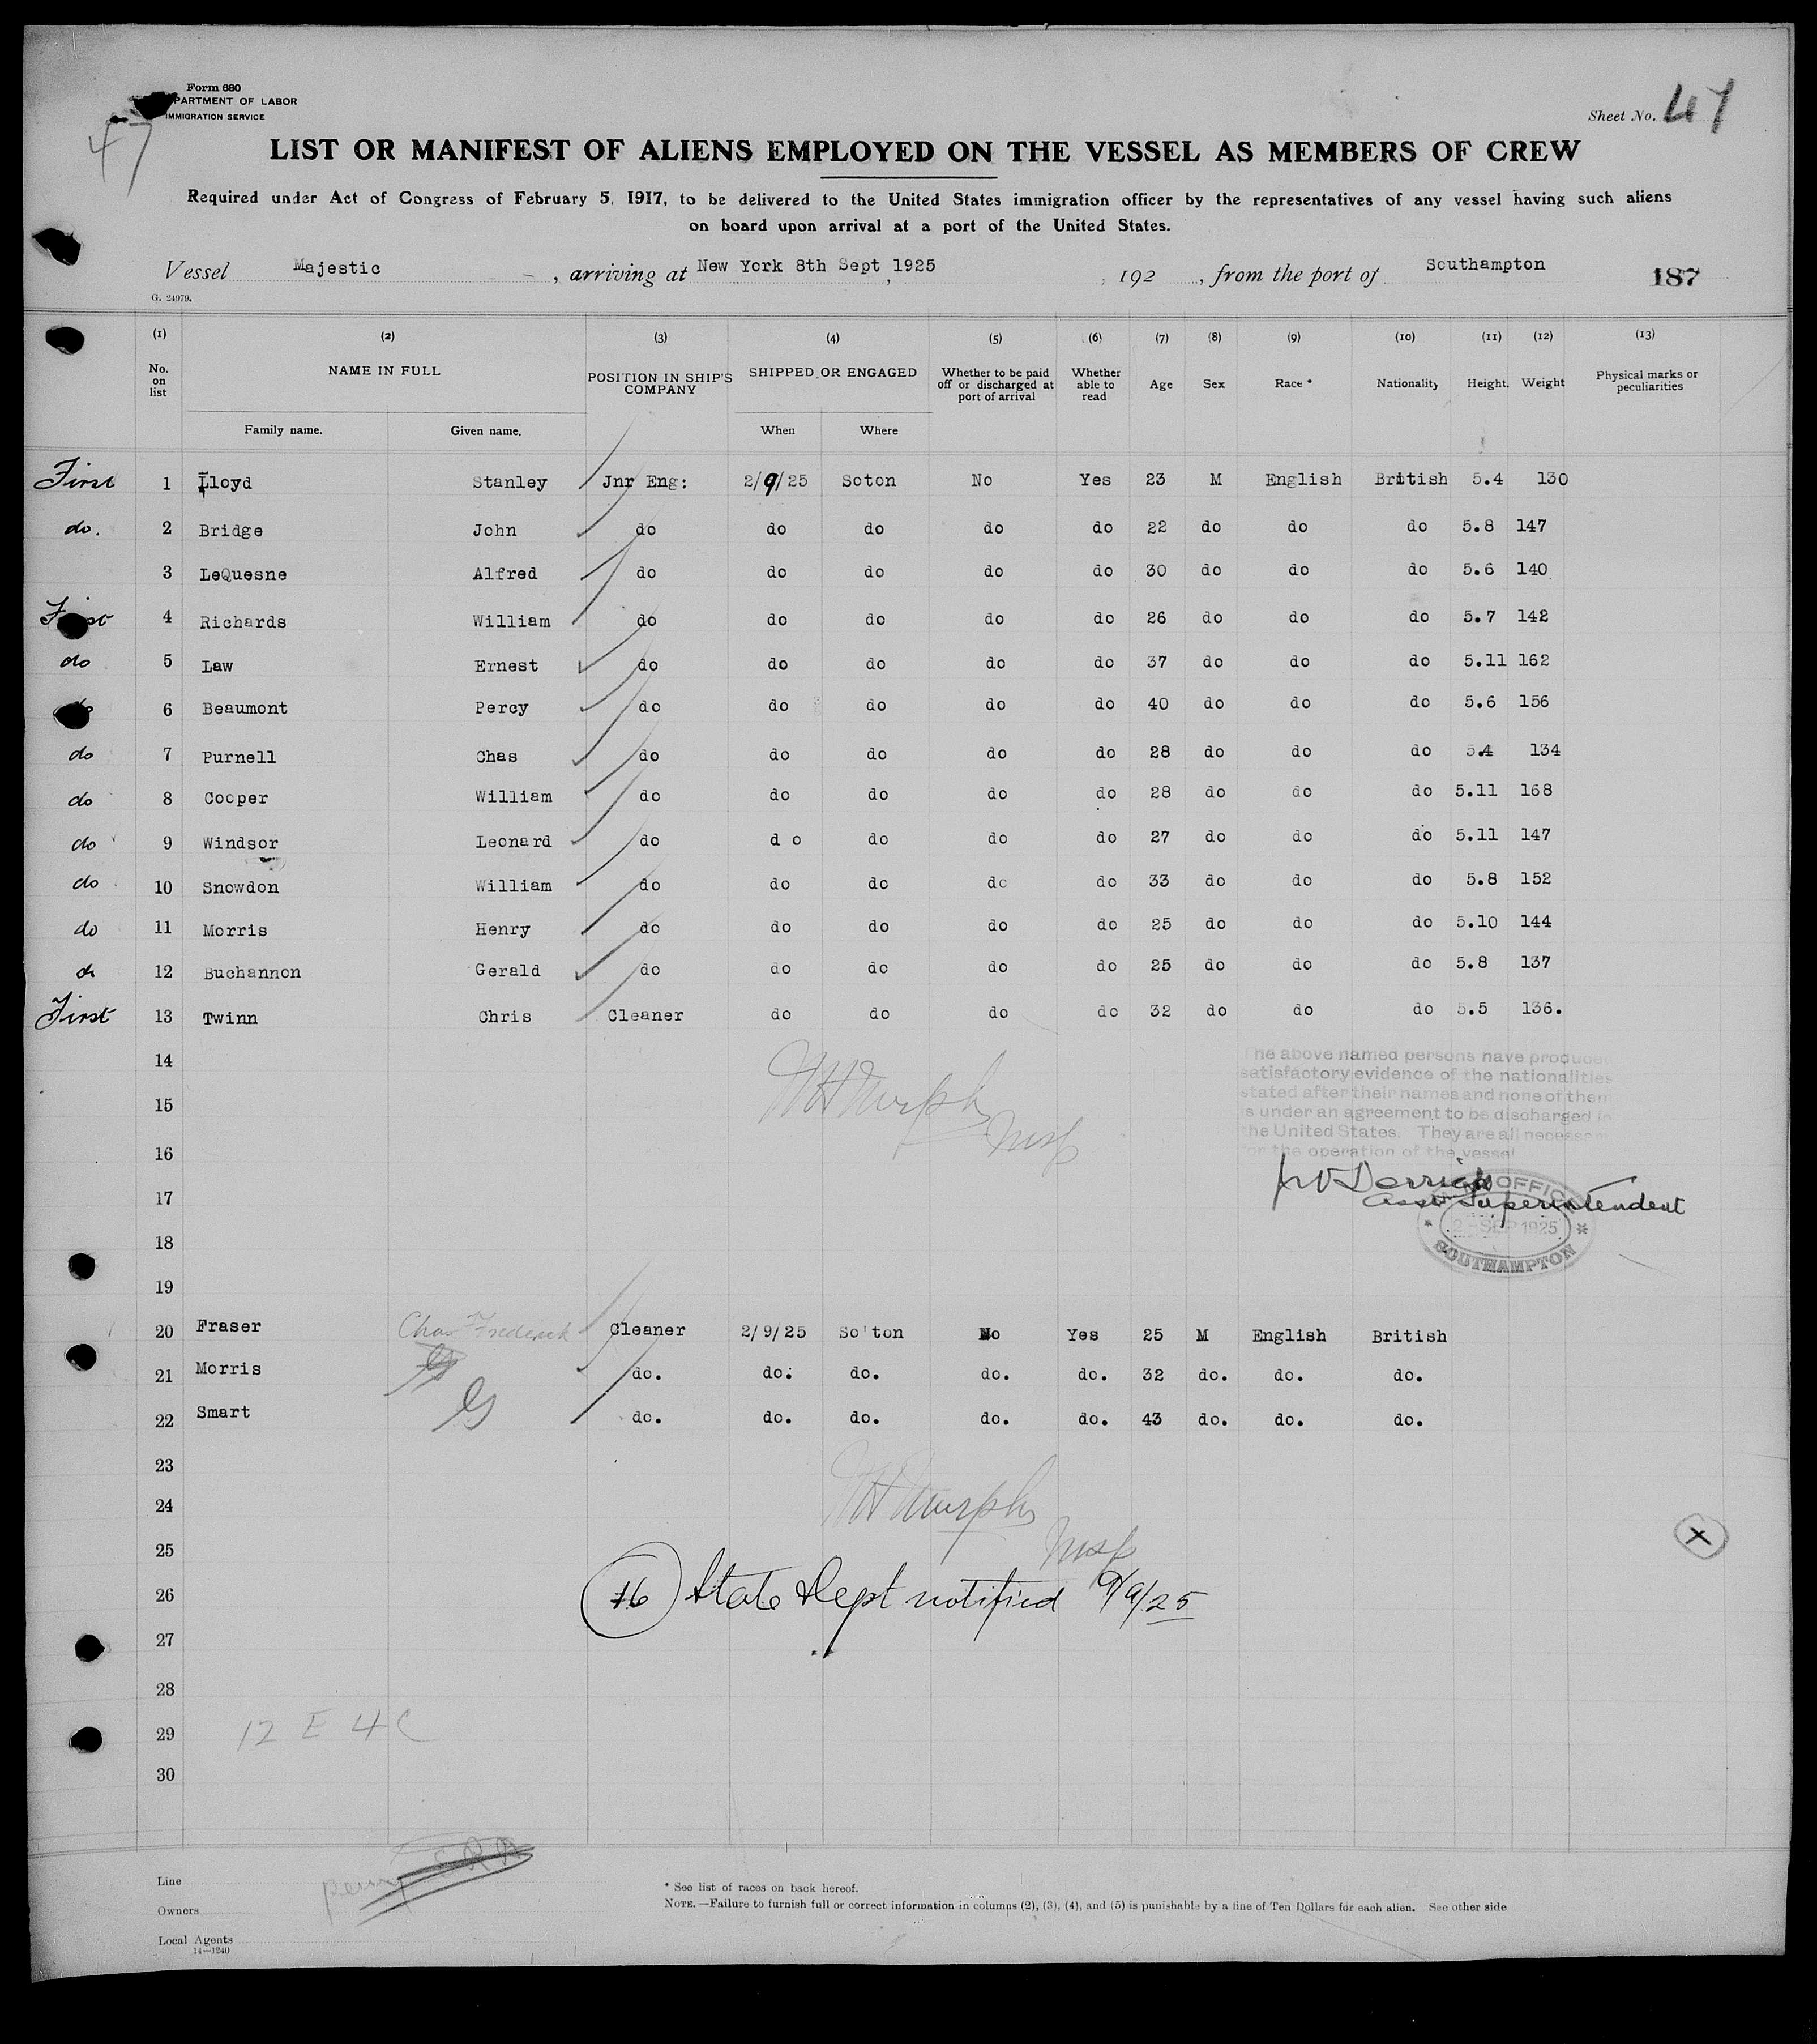 Form 680
PARTMENT OF LABOR
IMMIGRATION SERVICE
47
Sheet No. 47
LIST OR MANIFEST OF ALIENS EMPLOYED ON THE VESSEL AS MEMBERS OF CREW
Required under Act of Congress of February 5, 1917, to be delivered to the United States immigration officer by the representatives of any vessel having such aliens
on board upon arrival at a port of the United States.
Vessel Majestic , arriving at New York 8th Sept 1925 , 192 , from the port of Southampton 187
G. 24979.
(1) (2) (3) (4) (5) (6) (7) (8) (9) (10) (11) (12) (13)
No. on list NAME IN FULL POSITION IN SHIP'S COMPANY SHIPPED OR ENGAGED Whether to be paid off or discharged at port of arrival Whether able to read Age Sex Race * Nationality Height. Weight Physical marks or peculiarities
Family name. Given name. When Where
First 1 Lloyd Stanley Jnr Eng: 2/9/25 Soton No Yes 23 M English British 5.4 130
do. 2 Bridge John do do do do do 22 do do do 5.8 147
3 LeQuesne Alfred do do do do do 30 do do do 5.6 140
First 4 Richards William do do do do do 26 do do do 5.7 142
do 5 Law Ernest do do do do do 37 do do do 5.11 162
do 6 Beaumont Percy do do do do do 40 do do do 5.6 156
do 7 Purnell Chas do do do do do 28 do do do 5.4 134
do 8 Cooper William do do do do do 28 do do do 5.11 168
do 9 Windsor Leonard do d o do do do 27 do do do 5.11 147
do 10 Snowdon William do do do do do 33 do do do 5.8 152
do 11 Morris Henry do do do do do 25 do do do 5.10 144
do 12 Buchannon Gerald do do do do do 25 do do do 5.8 137
First 13 Twinn Chris Cleaner do do do do 32 do do do 5.5 136.
14
The above named persons have produced
satisfactory evidence of the nationalities
stated after their names and none of them
15
is under an agreement to be discharged in
the United States. They are all necessary
for the operation of the vessel
Murphy
Insp
16
Derrick
17
Asst Superintendent
OFFICE
2 - SEP 1925
SOUTHAMPTON
18
19
20 Fraser Chas Frederick Cleaner 2/9/25 So'ton No Yes 25 M English British
21 Morris do. do: do. do. do. 32 do. do. do.
22 Smart do. do. do. do. do. 43 do. do. do.
23
24 Murphy
25 Insp
26 16 State Dept notified 9/9/25
27
28
29 12 E 4 C
30
Line
* See list of races on back hereof.
Owners
NOTE.—Failure to furnish full or correct information in columns (2), (3), (4), and (5) is punishable by a fine of Ten Dollars for each alien. See other side
Local Agents
14—1240